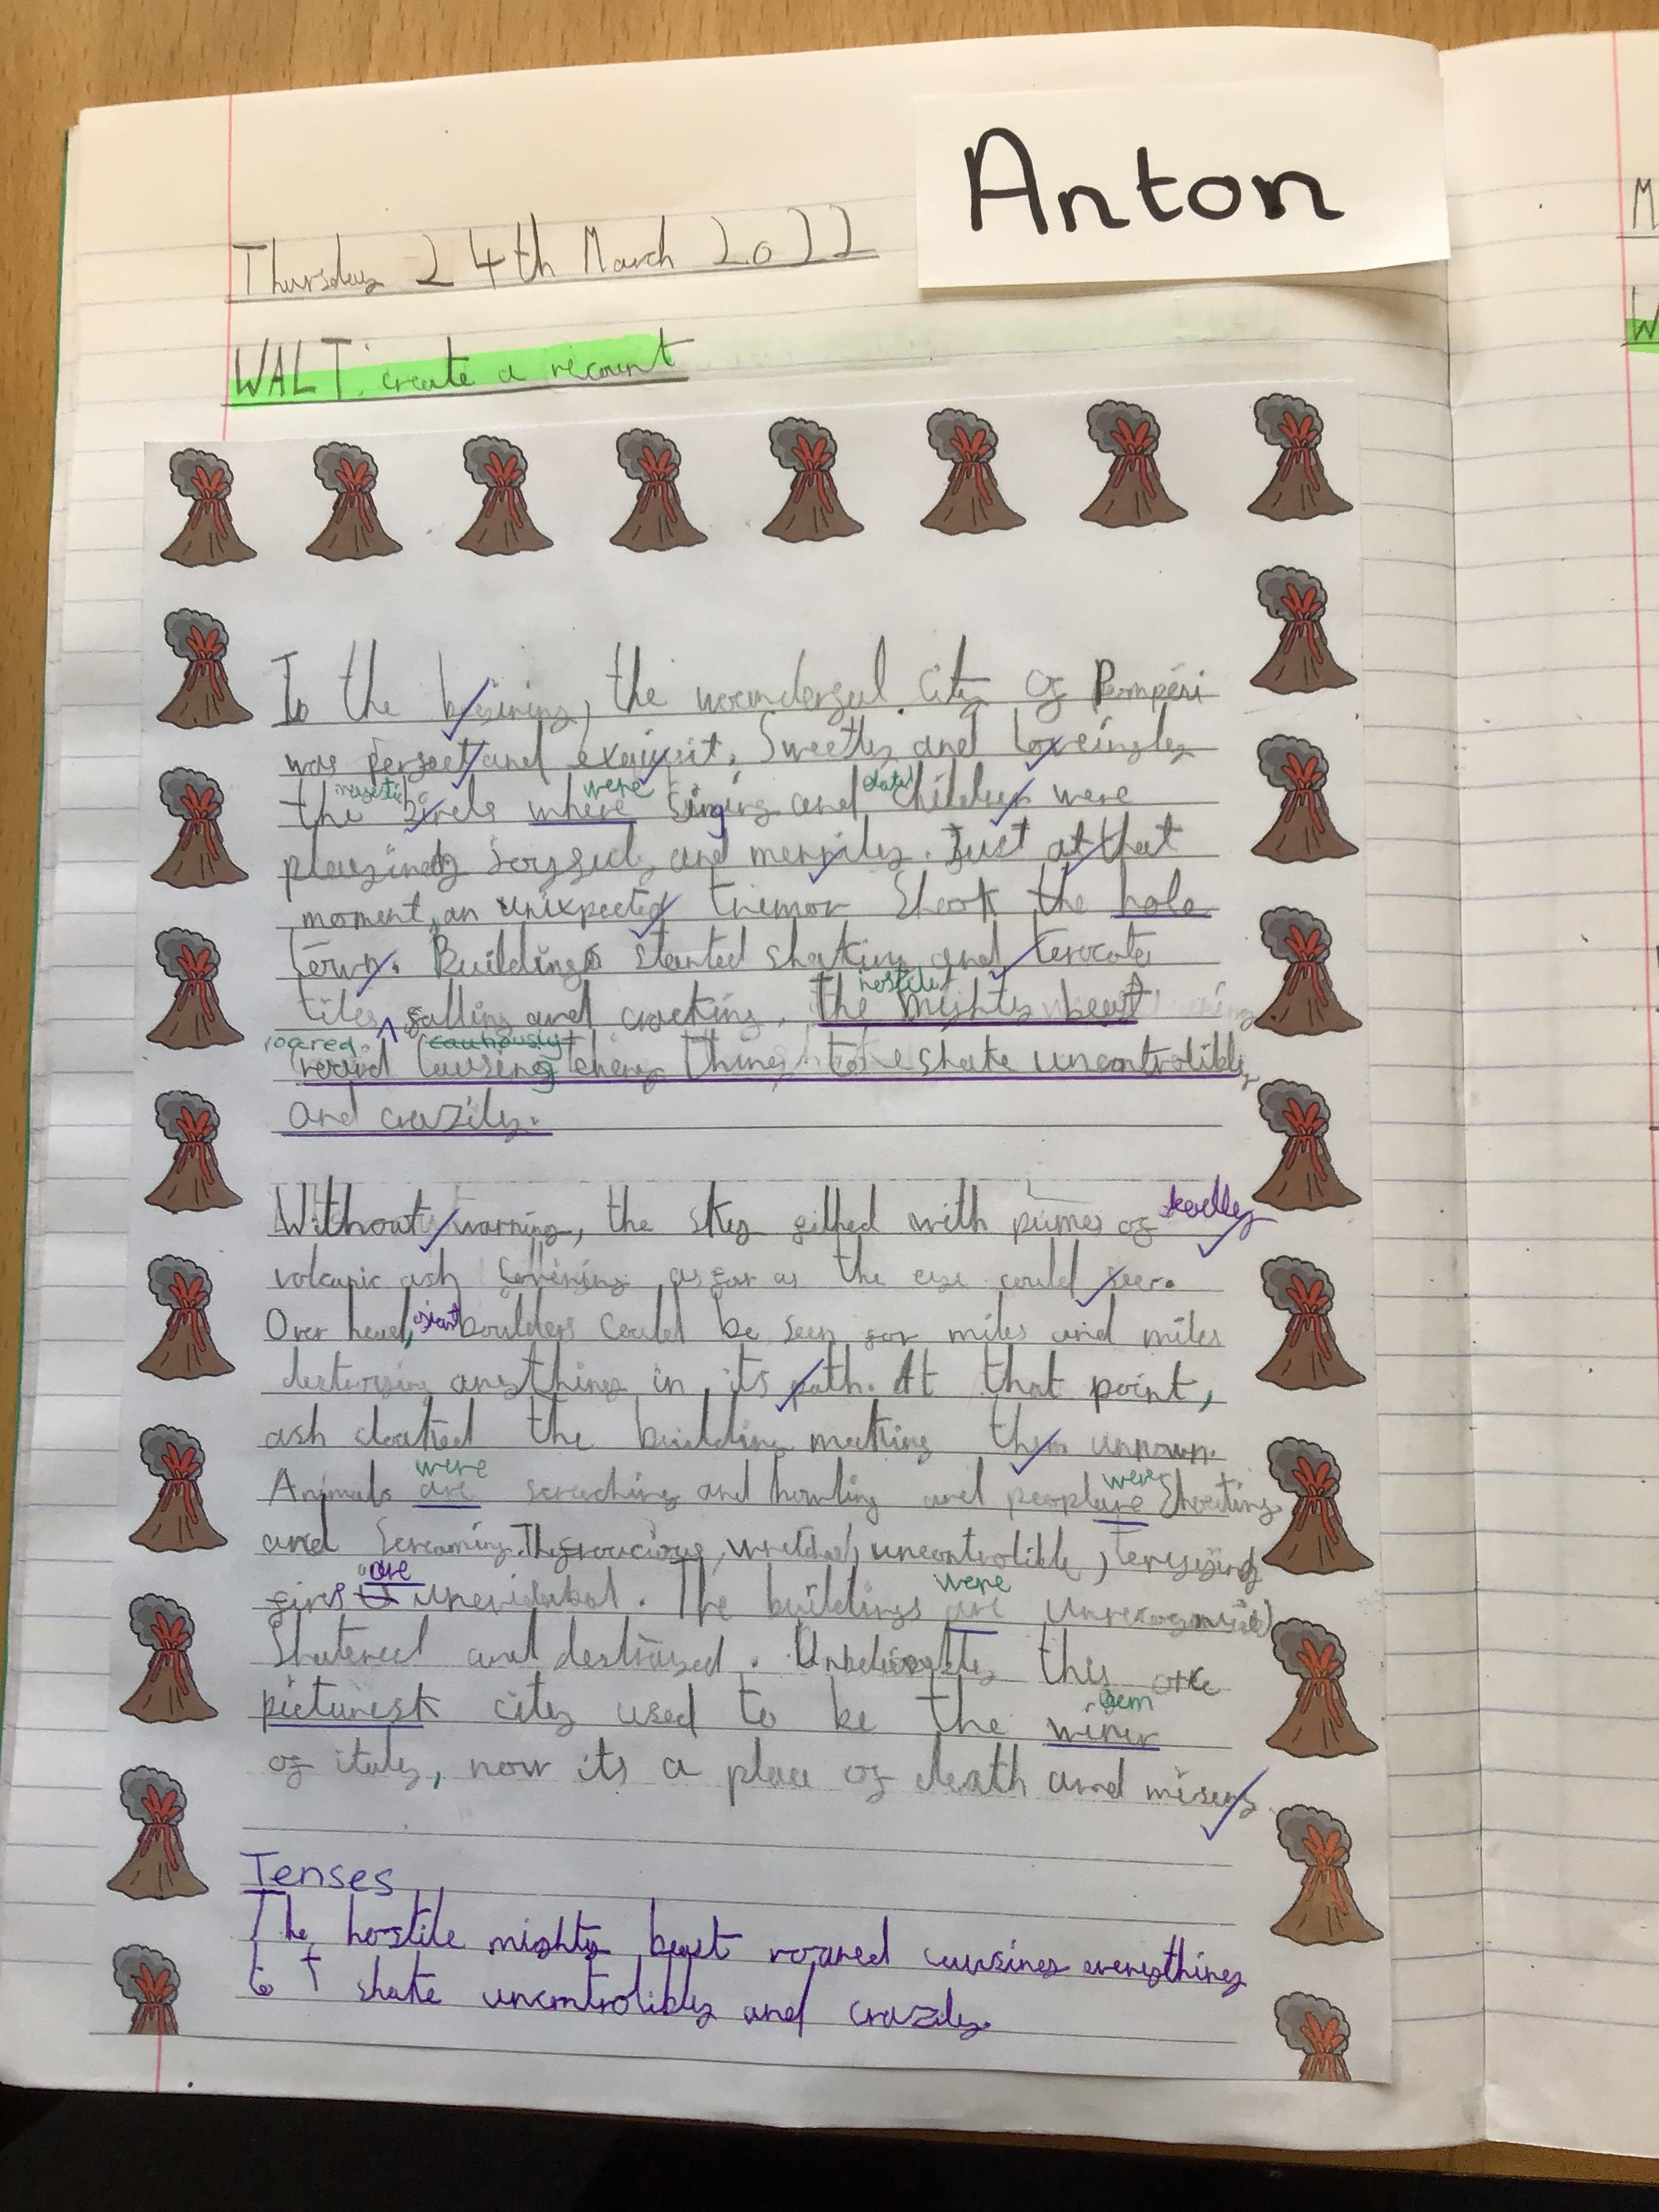 Anton
Thursday 24th March 2022
WALT: create a recount
In the , the wounderful city of Pompeii
was perfect and exquisit. Sweetly and loveingly
majestic were
the birds where singing and children were
playing joyfuly and merrily. Just at that
moment, an unixpected trimor Shook the hole
town. Buildings started shaking and terocota
hostile
tiles falling and cracking, the mighty beast
roared cautiously
causing every thing to shake uncontrolibly
and crazily.
deadly
Without warning, the sky filled with plumes of
volcanic ash as far as the eye could see.
giant
Over head, boulders could be seen for miles and miles
anything in its path. At that point,
ash cloaked the building making them unnown.
were were
Animals are screaching and howling and people are Shouting
and Screaming. The , uncontrolible,
are were
fires is . The buildings are
Shatered and . this once
gem
picturesk city used to be the winer
of italy, now its a place of death and misery
Tenses
The hostile mighty beast roared causing everything
to shake uncontrolibly and crazily.
M
W